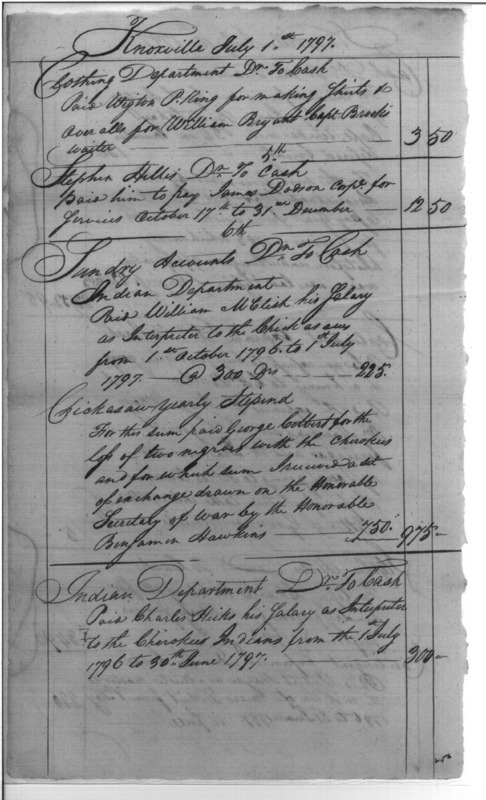 Knoxville July 1.st 1797.
Clothing Department Dr. To Cash
Paid Wigton P. King for making Shirts &
Over alls for William Bryant Capt. Brocks
waiter 3 50
5th
Stephen Hillis Dr. To Cash
Paid him to pay James Dodson Corpl. for
Services October 17th to 31st December 12 50
6th
Sundry Accounts Dr. To Cash
Indian Department
Paid William McClish his Salary
as Interpreter to the Chickasaws
from 1.st October 1796 to 1st July
1797. @ 300 Drs 225.
Chickasaw yearly Stepend
For this sum paid George Colbert for the
loss of two negroes with the Cherokees
and for which sum I received a set
of exchange drawn on the Honorable
Secretary of War by the Honorable
Benjamin Hawkins 750. 975 –
Indian Department Dr. To Cash
Paid Charles Hicks his Salary as Interpreter
to the Cherokees Indians from the 1st July
1796 to 30th June 1797. 300 –